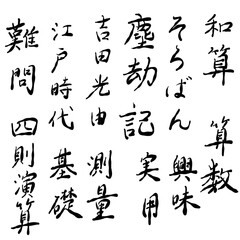 和算 算数
そろばん 興味
塵劫記 実用
吉田光由 測量
江戸時代 基礎
難問 四則演算